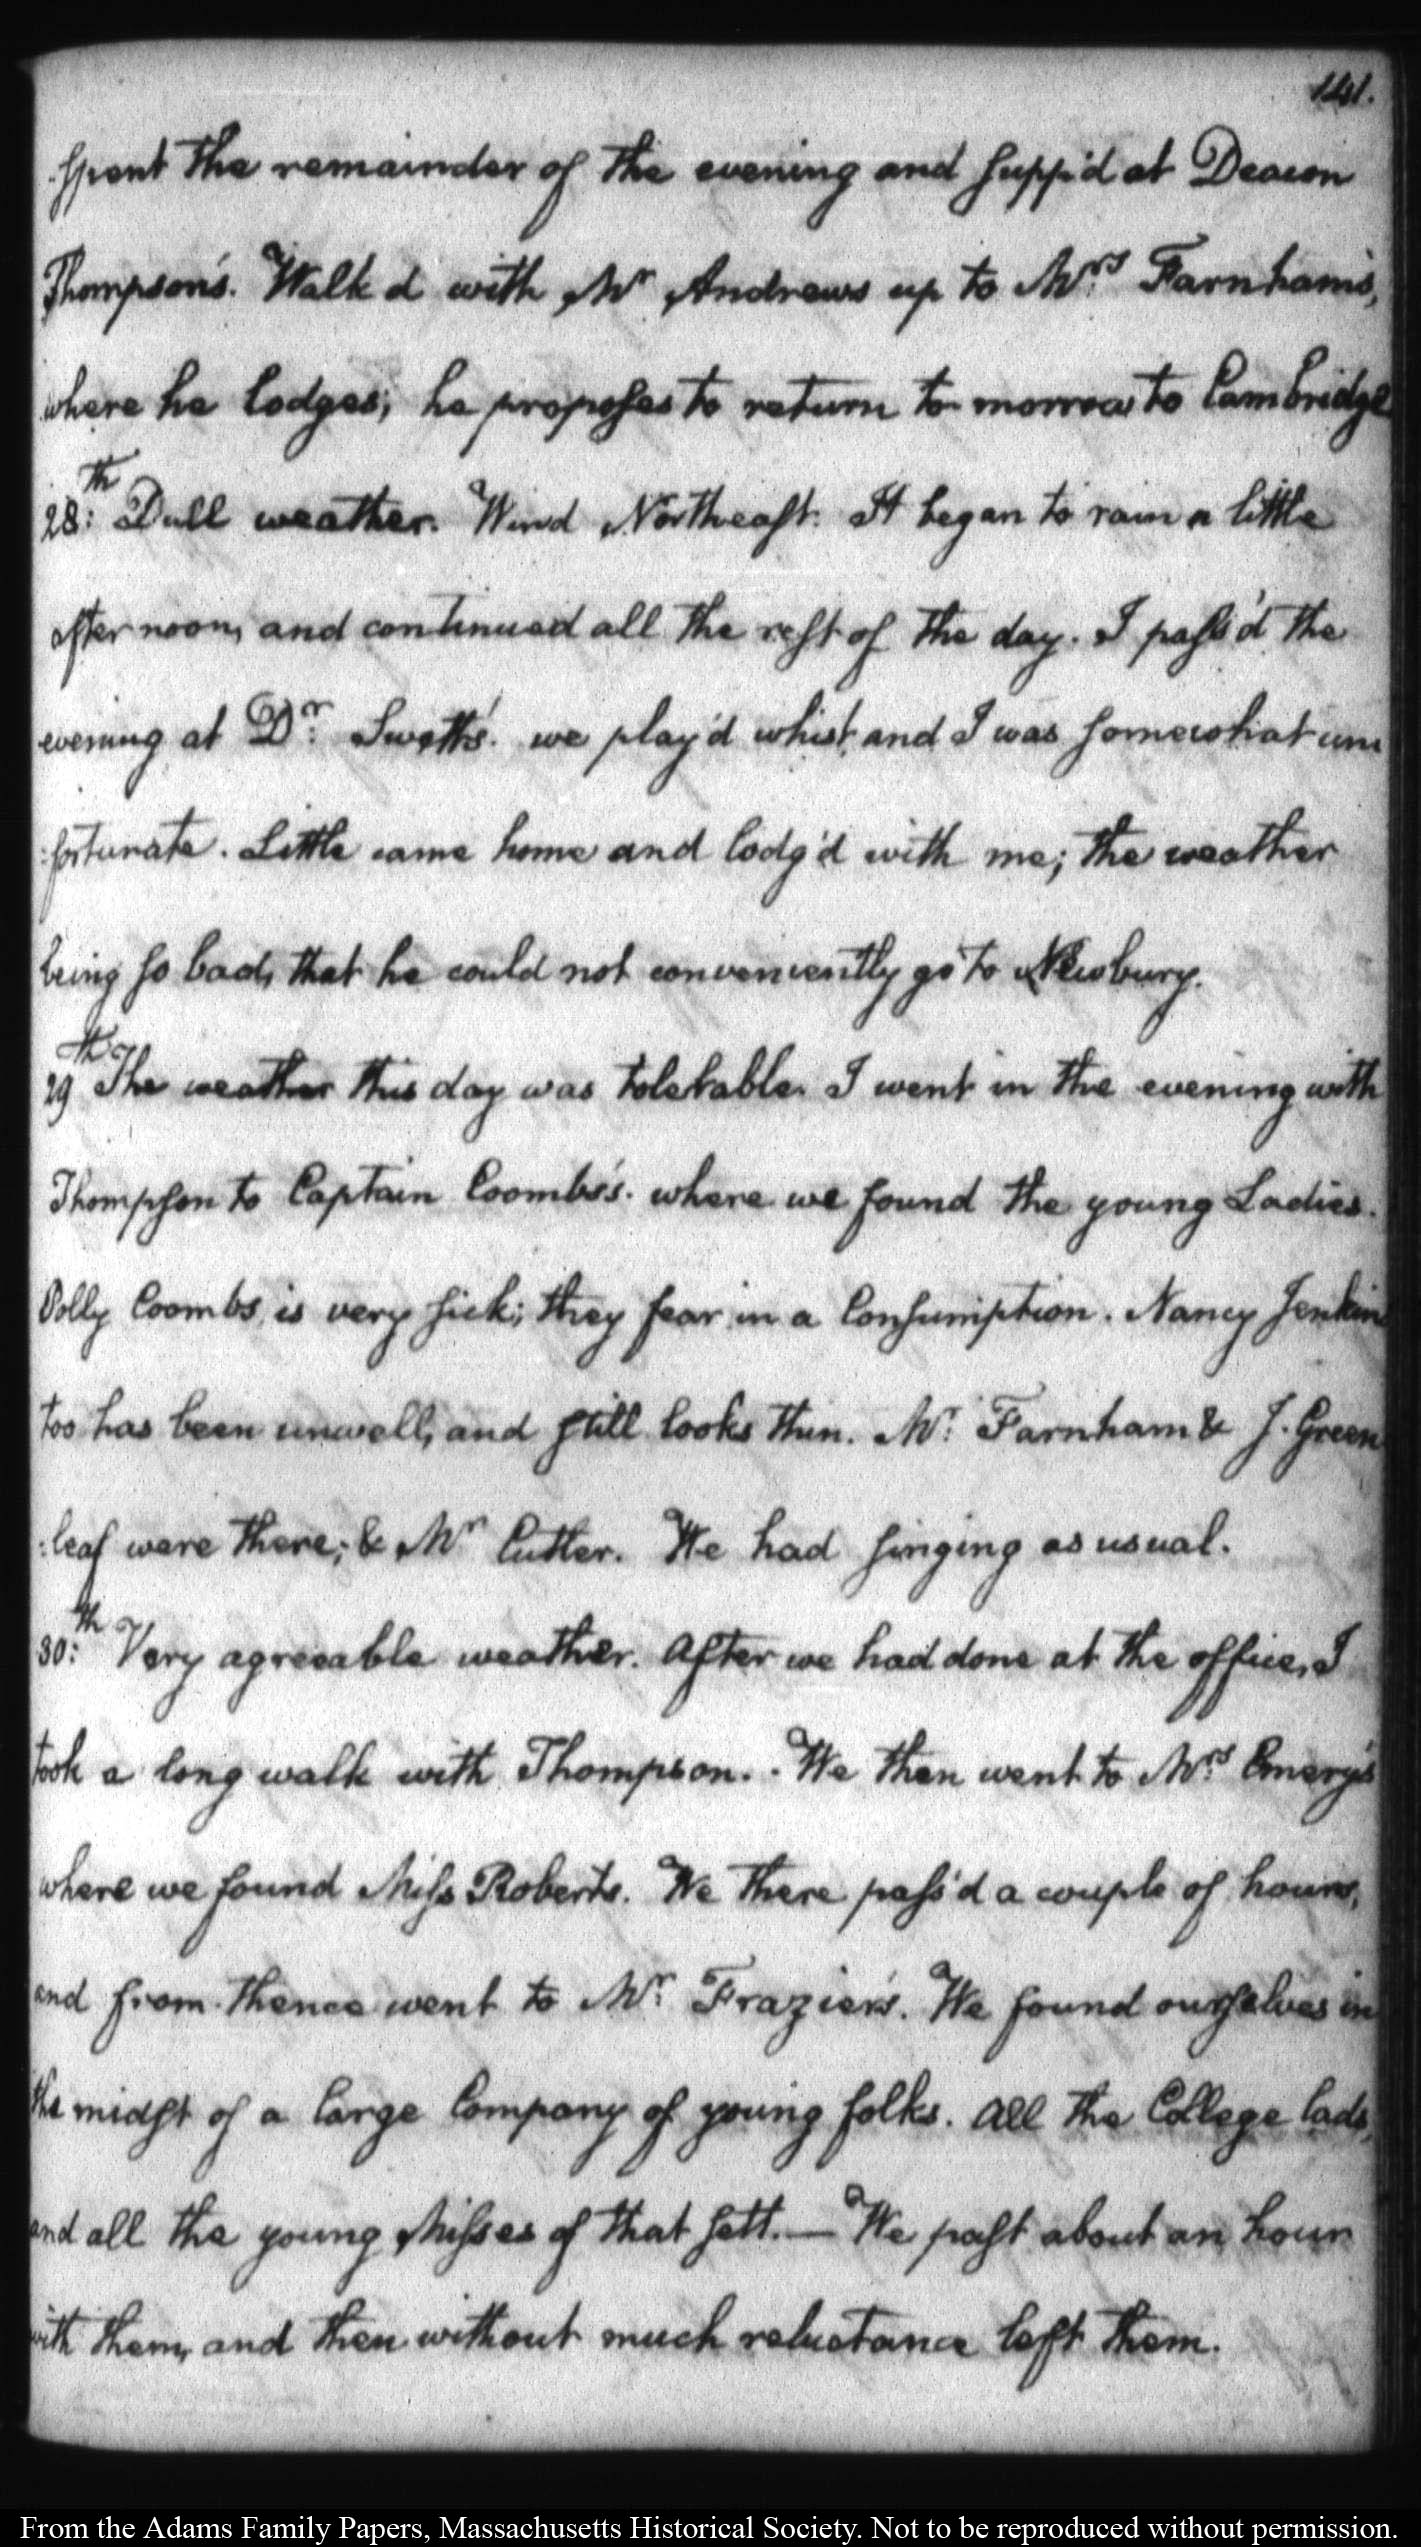 141.
spent the remainder of the evening and supp'd at Deacon
Thompson's. Walk'd with Mr Andrews up to Mrs. Farnham's,
where he lodges; he proposes to return to-morrow to Cambridge
28:th Dull weather. Wind Northeast. It began to rain a little
after noon, and continued all the rest of the day. I pass'd the
evening at Dr: Swett's. we play'd whist, and I was somewhat un
:fortunate. Little came home and lodg'd with me; the weather
being so bad, that he could not conveniently go to Newbury.
29th The weather this day was tolerable. I went in the evening with
Thompson to Captain Coombs's. where we found the young Ladies.
Polly Coombs is very sick; they fear in a Consumption. Nancy Jenkins
too has been unwell, and still looks thin. Mr: Farnham & J. Green
:leaf were there; & Mr Cutler. We had singing as usual.
30:th Very agreeable weather. After we had done at the office, I
took a long walk with Thompson. We then went to Mrs: Emery's
where we found Miss Roberts. We there pass'd a couple of hours,
and from thence went to Mr: Frazier's. We found ourselves in
the midst of a large Company of young folks. All the College lads,
and all the young Misses of that sett. — We past about an hour
with them, and then without much reluctance left them.
From the Adams Family Papers, Massachusetts Historical Society. Not to be reproduced without permission.